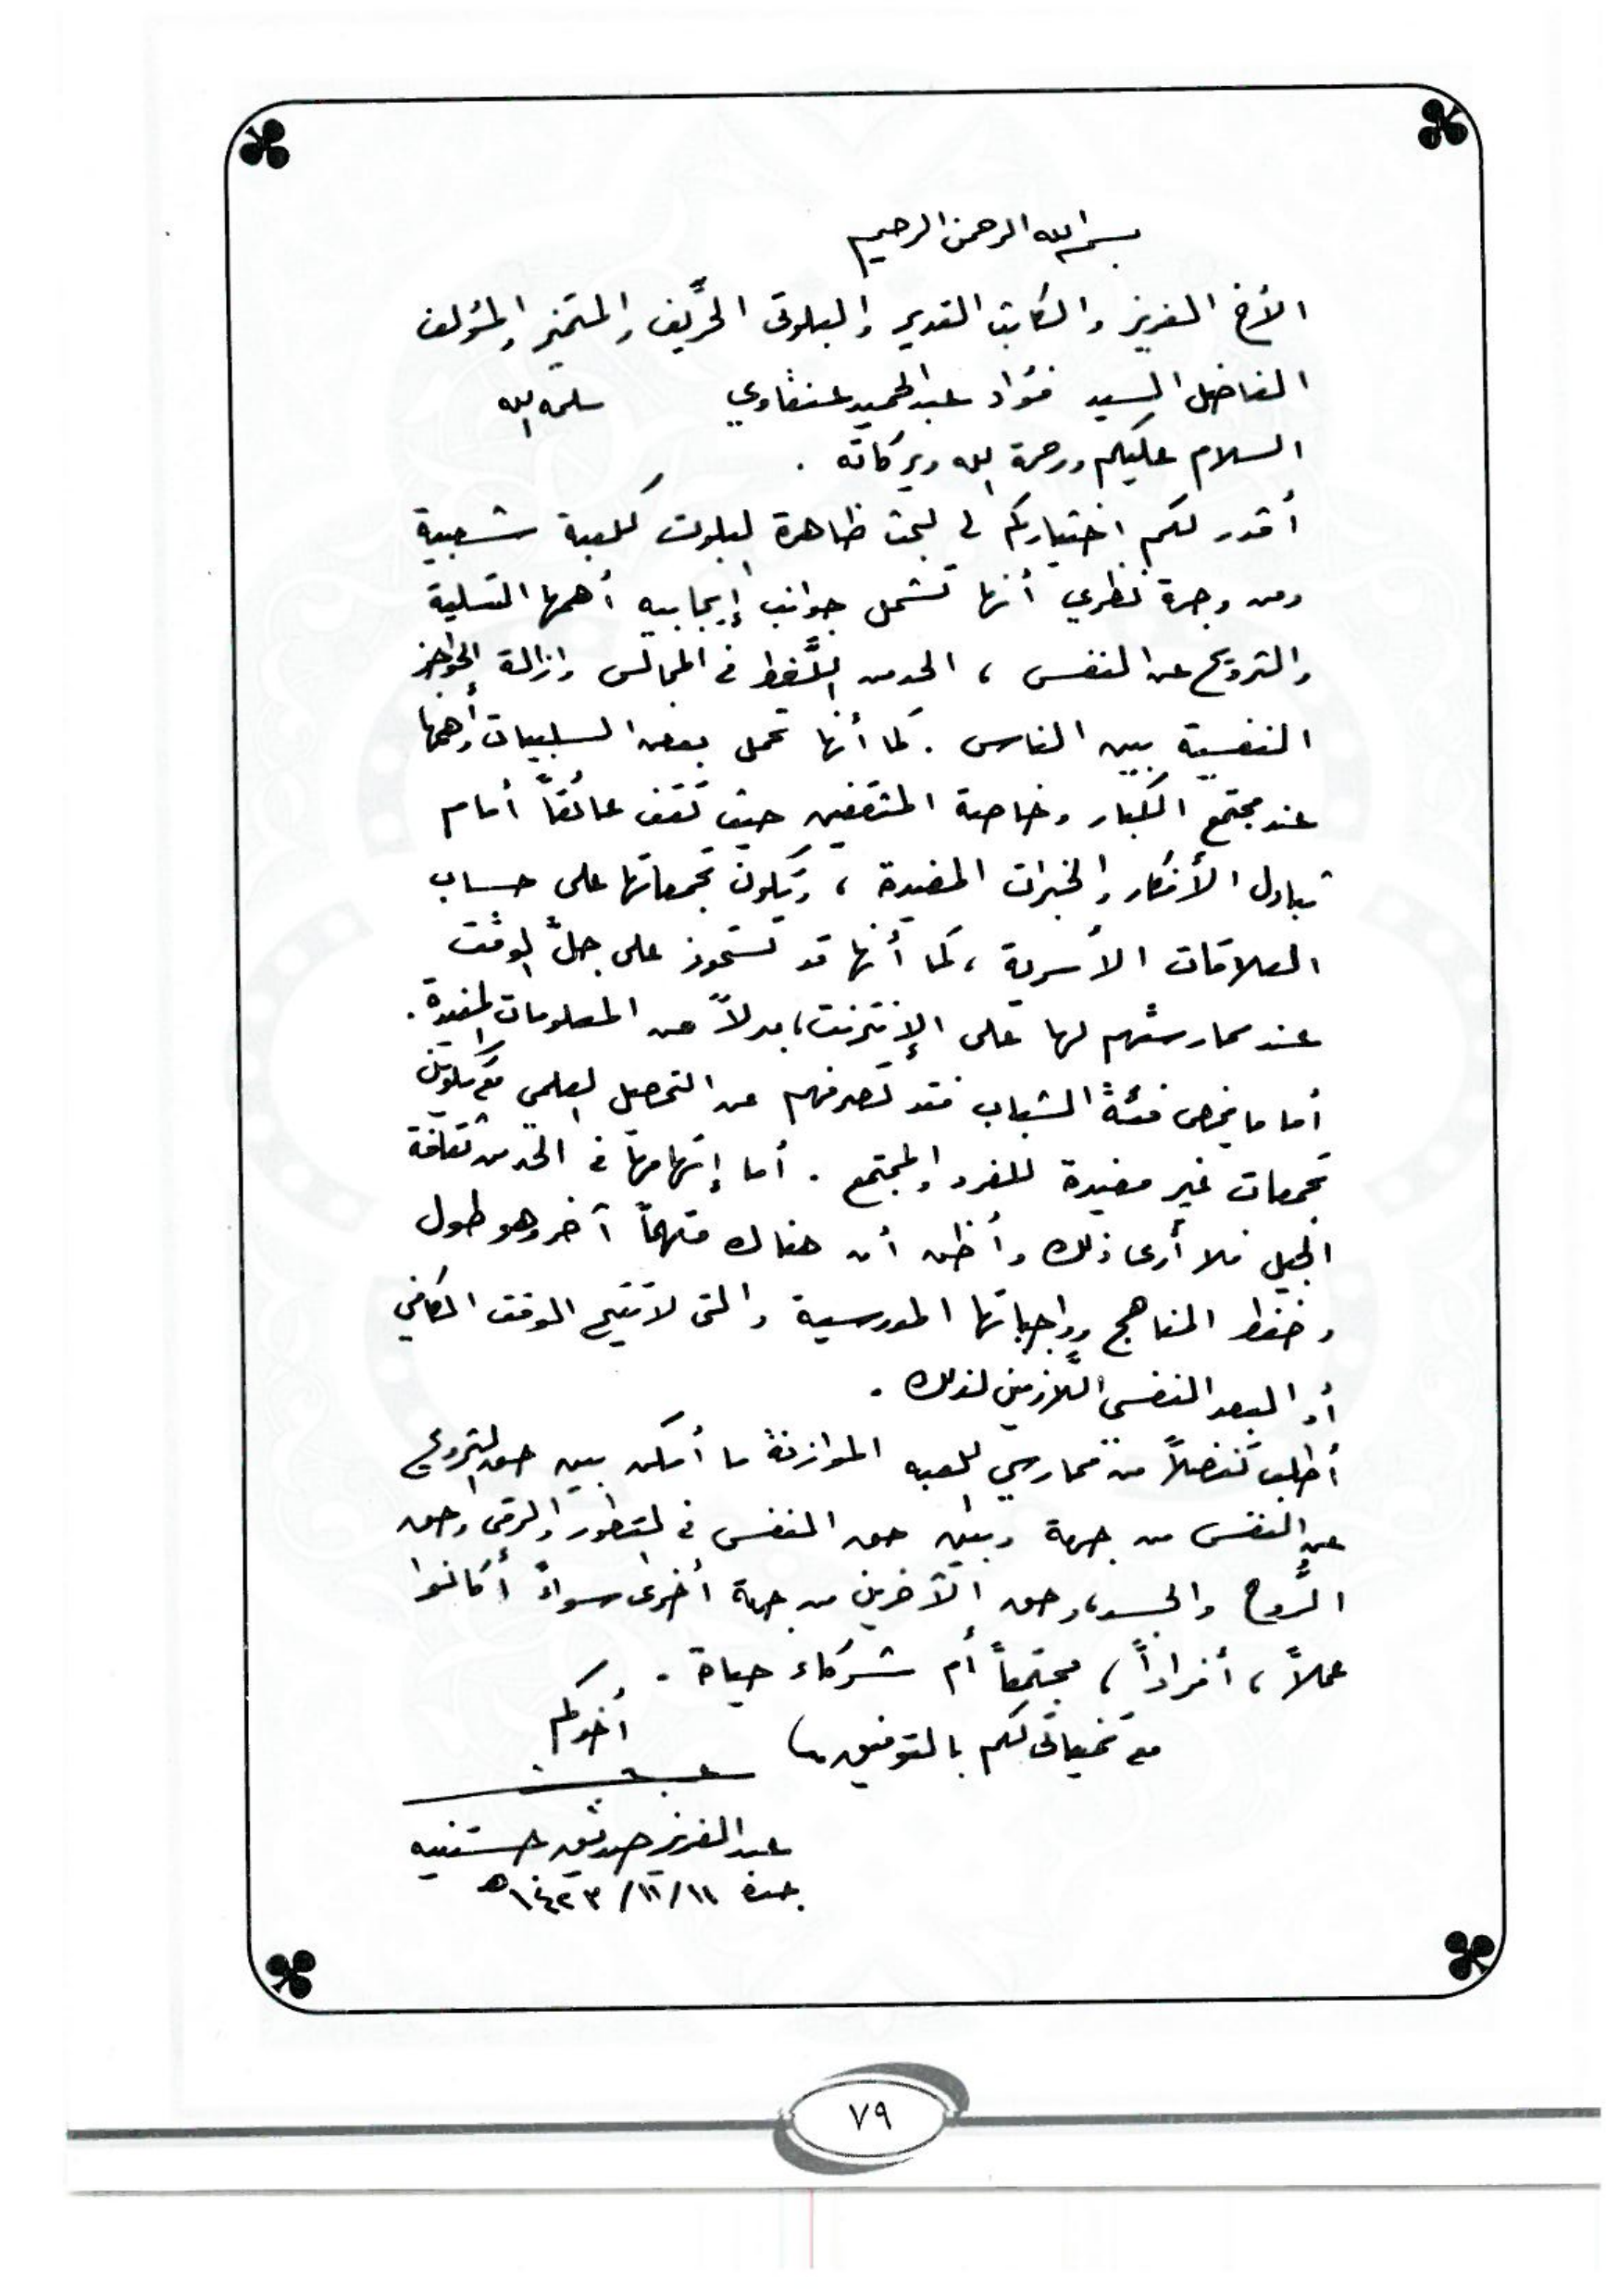 بسم الله الرحمن الرحيم
الأخ العزيز والكاتب القدير والبلوتي الحرِّيف والمتميز والمؤلف
الفاضل السيد فؤاد عبدالحميد عنقاوي سلمه الله
السلام عليكم ورحمة الله وبركاته .
أقدر لكم اختياركم لي لبحث ظاهرة البلوت كلعبة شعبية
ومن وجهة نظري أنها تشمل جوانب إيجابيه أهمها التسلية
والترويح عن النفس ، الحد من اللَّغط في المجالس وإزالة الحواجز
النفسية بين الناس . كما أنها تحمل بعض السلبيات أهمها
عند مجتمع الكبار وخاصة المثقفين حيث تقف عائقاً أمام
تبادل الأفكار والخبرات المفيدة ، وتكون تجمعاتها على حساب
العلاقات الأسرية ، كما أنها قد تستحوذ على جلّ الوقت
عند ممارستهم لها على الإنترنت ، بدلاً من المعلومات المفيدة .
أما ما يخص فئة الشباب فقد تصرفهم عن التحصيل العلمي مع تكوين
تجمعات غير مفيدة للفرد والمجتمع . أما إتهامها في الحد من ثقافة
الجيل فلا أرى ذلك وأظن أن هناك متهماً آخر وهو طول
وضغط المناهج وواجباتها المدرسية والتي لا تتيح الوقت الكافي
أو البعد النفسي اللَّازمين لذلك .
أطلب تفضلاً من ممارسي اللعبه الموازنة ما أمكن بين حق الترويح
عن النفس من جهة وبين حق النفس في التطور والرقي وحق
الرُّوح والجسد ، وحق الآخرين من جهة أخرى سواءً أكانوا
عملاً ، أفراداً ، مجتمعاً أم شركاء حياة .
مع تمنياتي لكم بالتوفيق ،،
أخوكم
عبدالعزيز صديق حستنيه
جدة ١١/١١/١٤٢٣هـ
٧٩